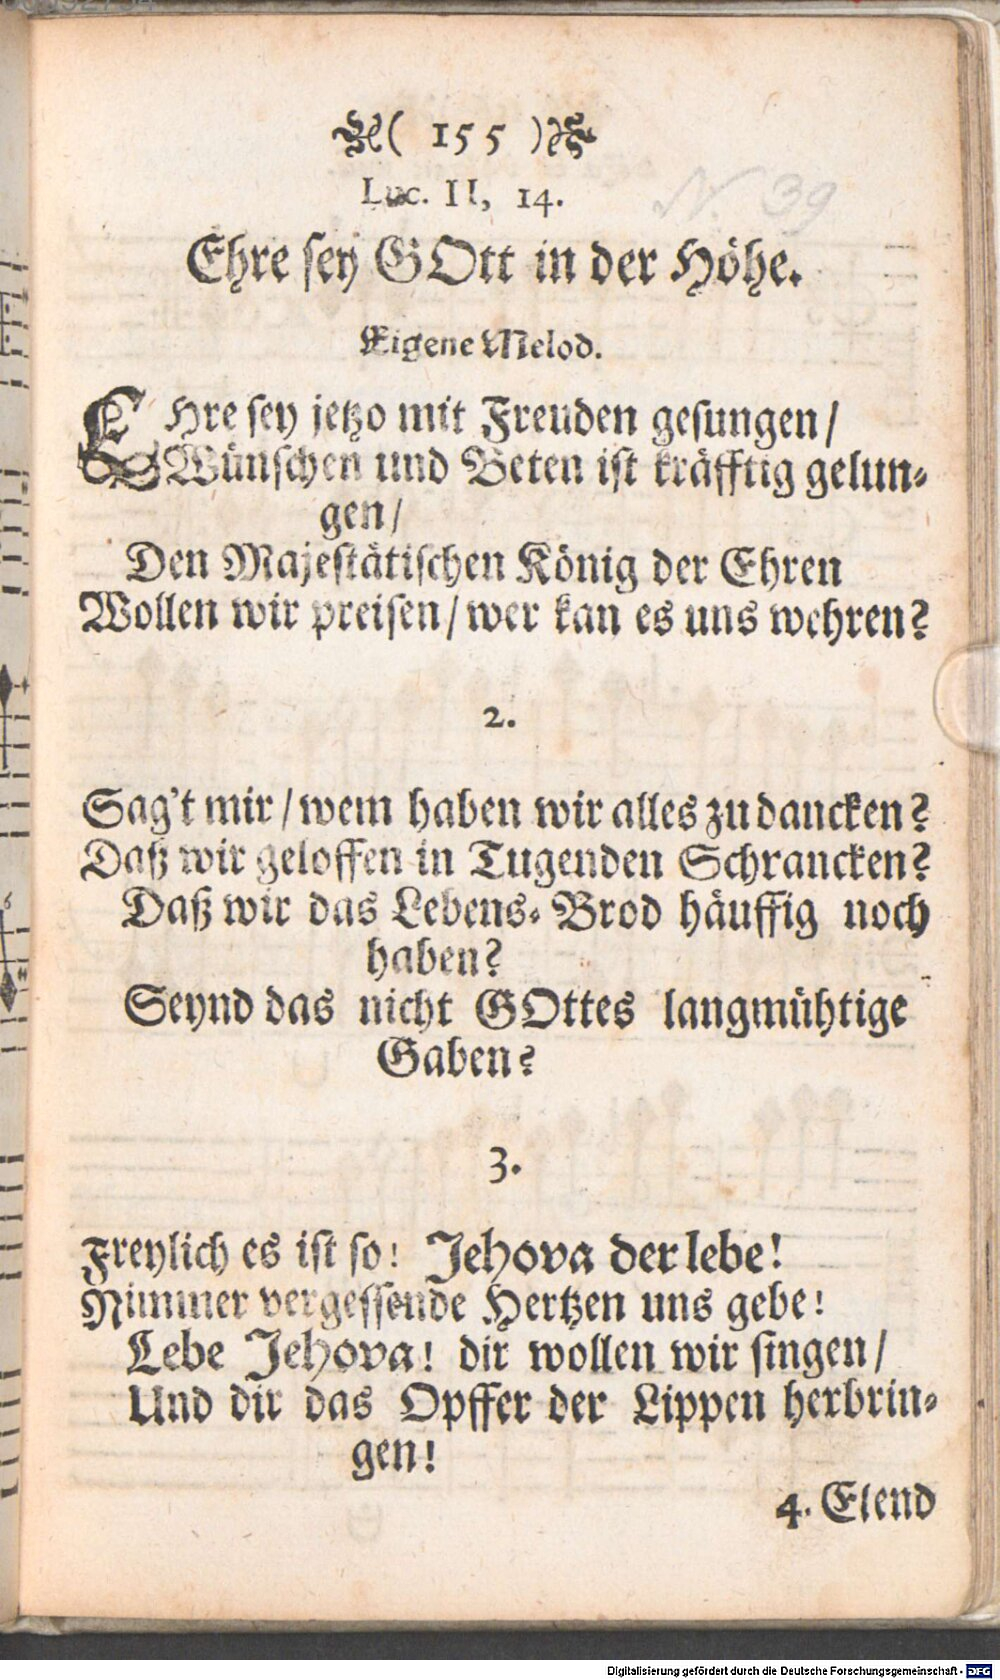 ( 155 )
Luc. II, 14.
N. 39
Ehre ſey GOtt in der Höhe.
Eigene Melod.
EHre ſey jetzo mit Freuden geſungen/
Wünſchen und Beten iſt kräfftig gelun-
gen/
Den Majeſtätiſchen König der Ehren
Wollen wir preiſen/ wer kan es uns wehren?
2.
Sag't mir/ wem haben wir alles zu dancken?
Daß wir geloffen in Tugenden Schrancken?
Daß wir das Lebens-Brod häuffig noch
haben?
Seynd das nicht GOttes langmühtige
Gaben?
3.
Freylich es iſt ſo! Jehova der lebe!
Nimmer vergeſſende Hertzen uns gebe!
Lebe Jehova! dir wollen wir ſingen/
Und dir das Opffer der Lippen herbrin-
gen!
4. Elend
Digitalisierung gefördert durch die Deutsche Forschungsgemeinschaft - DFG